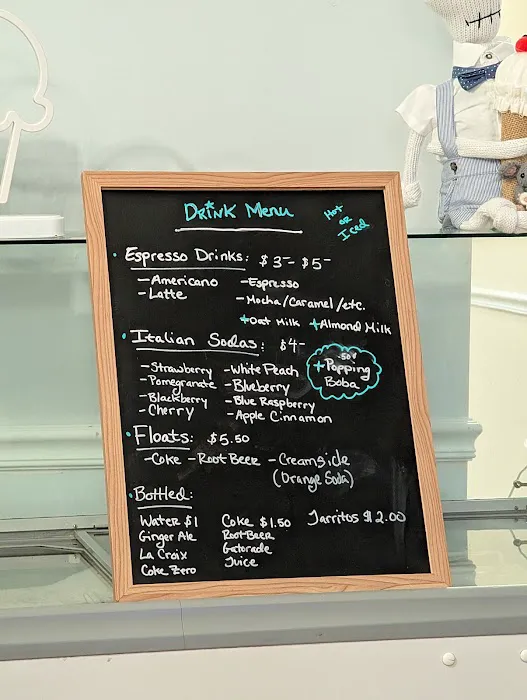 DRINK MENU
Hot
OR
Iced
Espresso Drinks: $3- - $5-
- Americano - Espresso
- Latte - Mocha/Caramel/etc.
+Oat Milk +Almond Milk
Italian Sodas: $4-
- Strawberry - White Peach
- Pomegranate - Blueberry
- Blackberry - Blue Raspberry
- Cherry - Apple Cinnamon
.50¢
+Popping
Boba
Floats: $5.50
- Coke - Root Beer - Creamsicle
(Orange Soda)
Bottled:
Water $1 Coke $1.50 Jarritos $2.00
Ginger Ale Root Beer
La Croix Gatorade
Coke Zero Juice